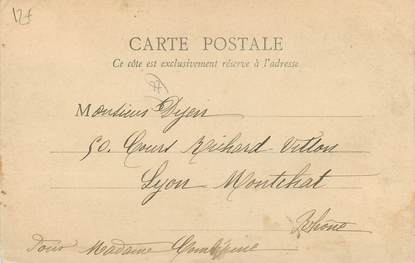 12f
CARTE POSTALE
Ce côté est exclusivement réservé à l'adresse
Monsieur Dyen
50. Cours Richard-Vitton
Lyon Montchat
Rhône
Pour Madame